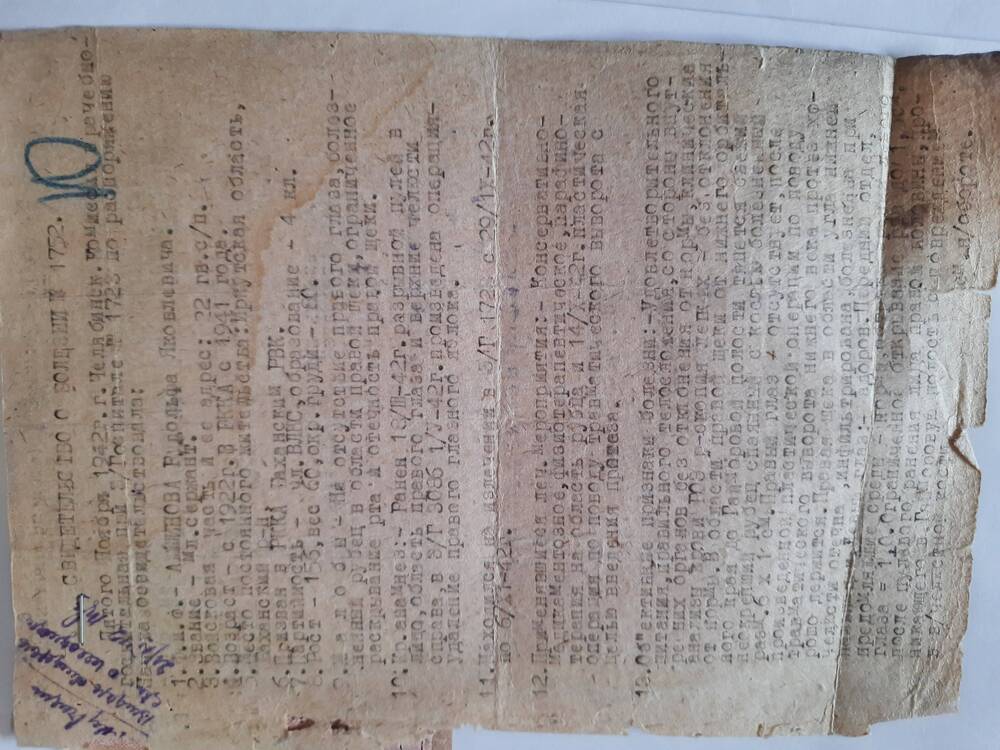 10
СВИДЕТЕЛЬСТВО О БОЛЕЗНИ № 1752.
Пятого Ноября 1942г. г.Челябинск. комиссия врачебно-
при Э/Госпитале № 1723 по распоряжению
освидетельствовала:
1. Рудольфа Яковлевича.
2. Звание - мл.сержант.
3. Войсковая часть и ее адрес: 22 гв.с/п.
4. Возраст - с 1922г. В РККА с 1941 года.
5. Место постоянного жительства: Иркутская область,
р-н.
6. Призван в РККА РВК.
7. Партийность - чл.ВЛКСМ, образование - 4 кл.
8. Рост - 156, вес 60, окр.груди -
9. Ж а л о б ы - На отсутствие правого глаза, болез-
ненный рубец в области правой щеки, ограниченное
раскрывание рта и отечность правой щеки.
10. Кр.анамнез:- Ранен 18/III-42г. разрывной пулей в
лицо, область правого глаза и верхние челюсти
справа, в Э/Г 3086 произведена операция-
удаление правого глазного яблока.
11. Находился на излечении в Э/Г 1723 с 29/IX-42г.
по 6/XI-42г.
12. Применявшиеся леч. мероприятия:- Консервативно-
медикаментозное, физиотерапевтическое, парафино-
терапия на область рубца и 14/X-42г. пластическая
операция по поводу травматического выворота с
целью введения протеза.
13. Об"ективные признаки болезни:-Удовлетворительного
питания, правильного телосложения, со стороны внут-
ренних органов без отклонения от нормы, клинические
анализы крови РОЭ легких - без отклонения
от нормы. В области правой щеки от нижнего орбиталь-
ного края до Гайморовой полости тянется свежий
рубец спаянный с костью болезненный
разм. 6 x 1 см. Правый глаз - отсутствует, после
произведенной пластической операции по поводу
травматического выворота нижнего века протез хо-
рошо держится. Правая щека в области угла нижней
челюсти отечна, инфильтрирована, болезненна при
глаз:- здоров. Передний отдел,
среды -
глаза = 1,0. открывание рта до
после пулевого ранения лица правой половины, про-
никающего в Гайморовую полость с повреждением
в/челюстной кости.
см. н/обороте.